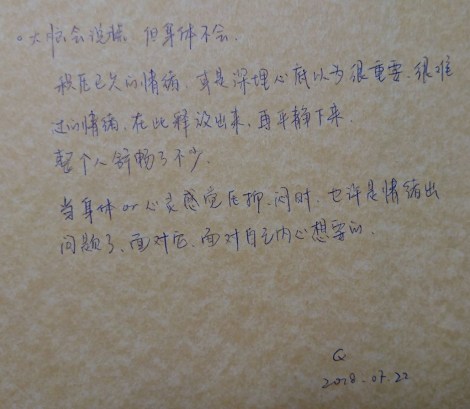 。大脑会说谎，但身体不会．
积压已久的情绪，或是深埋心底以为很重要、很难
过的情绪，在此释放出来，再平静下来．
整个人舒畅了不少．
当身体or心灵感觉压抑、闷时，也许是情绪出
问题了、面对它、面对自己内心想要的．
Q
2018.07.22